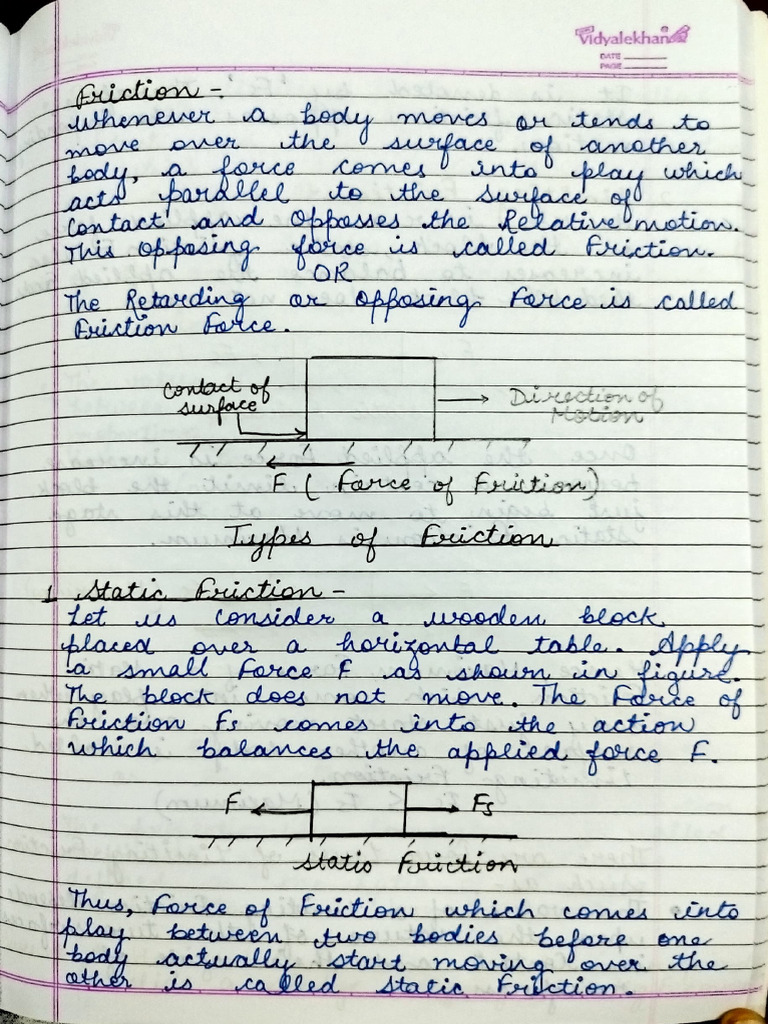 Vidyalekhan
DATE
PAGE
Friction -
Whenever a body moves or tends to
move over the surface of another
body, a force comes into play which
acts parallel to the surface of
Contact and Opposses the Relative motion.
This opposing force is called Friction.
OR
The Retarding or opposing Force is called
Friction Force.
Contact of
surface
Direction of
Motion
F ( Force of Friction)
Types of Friction
1 Static Friction -
Let us consider a wooden block
placed over a horizontal table. Apply
a small Force F as shown in figure.
The block does not move. The Force of
Friction Fs comes into the action
which balances the applied force F.
F
Fs
Static Friction
Thus, Force of Friction which comes into
play between two bodies before one
body actually start moving over the
other is called Static Friction.